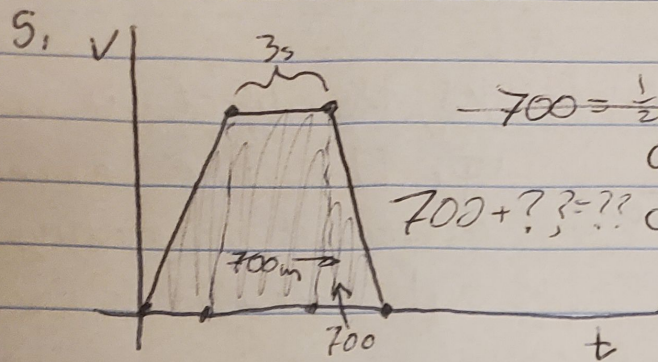 5. V
3s
700 = 1/2
700 + ? ? = ??
700m →
700
t